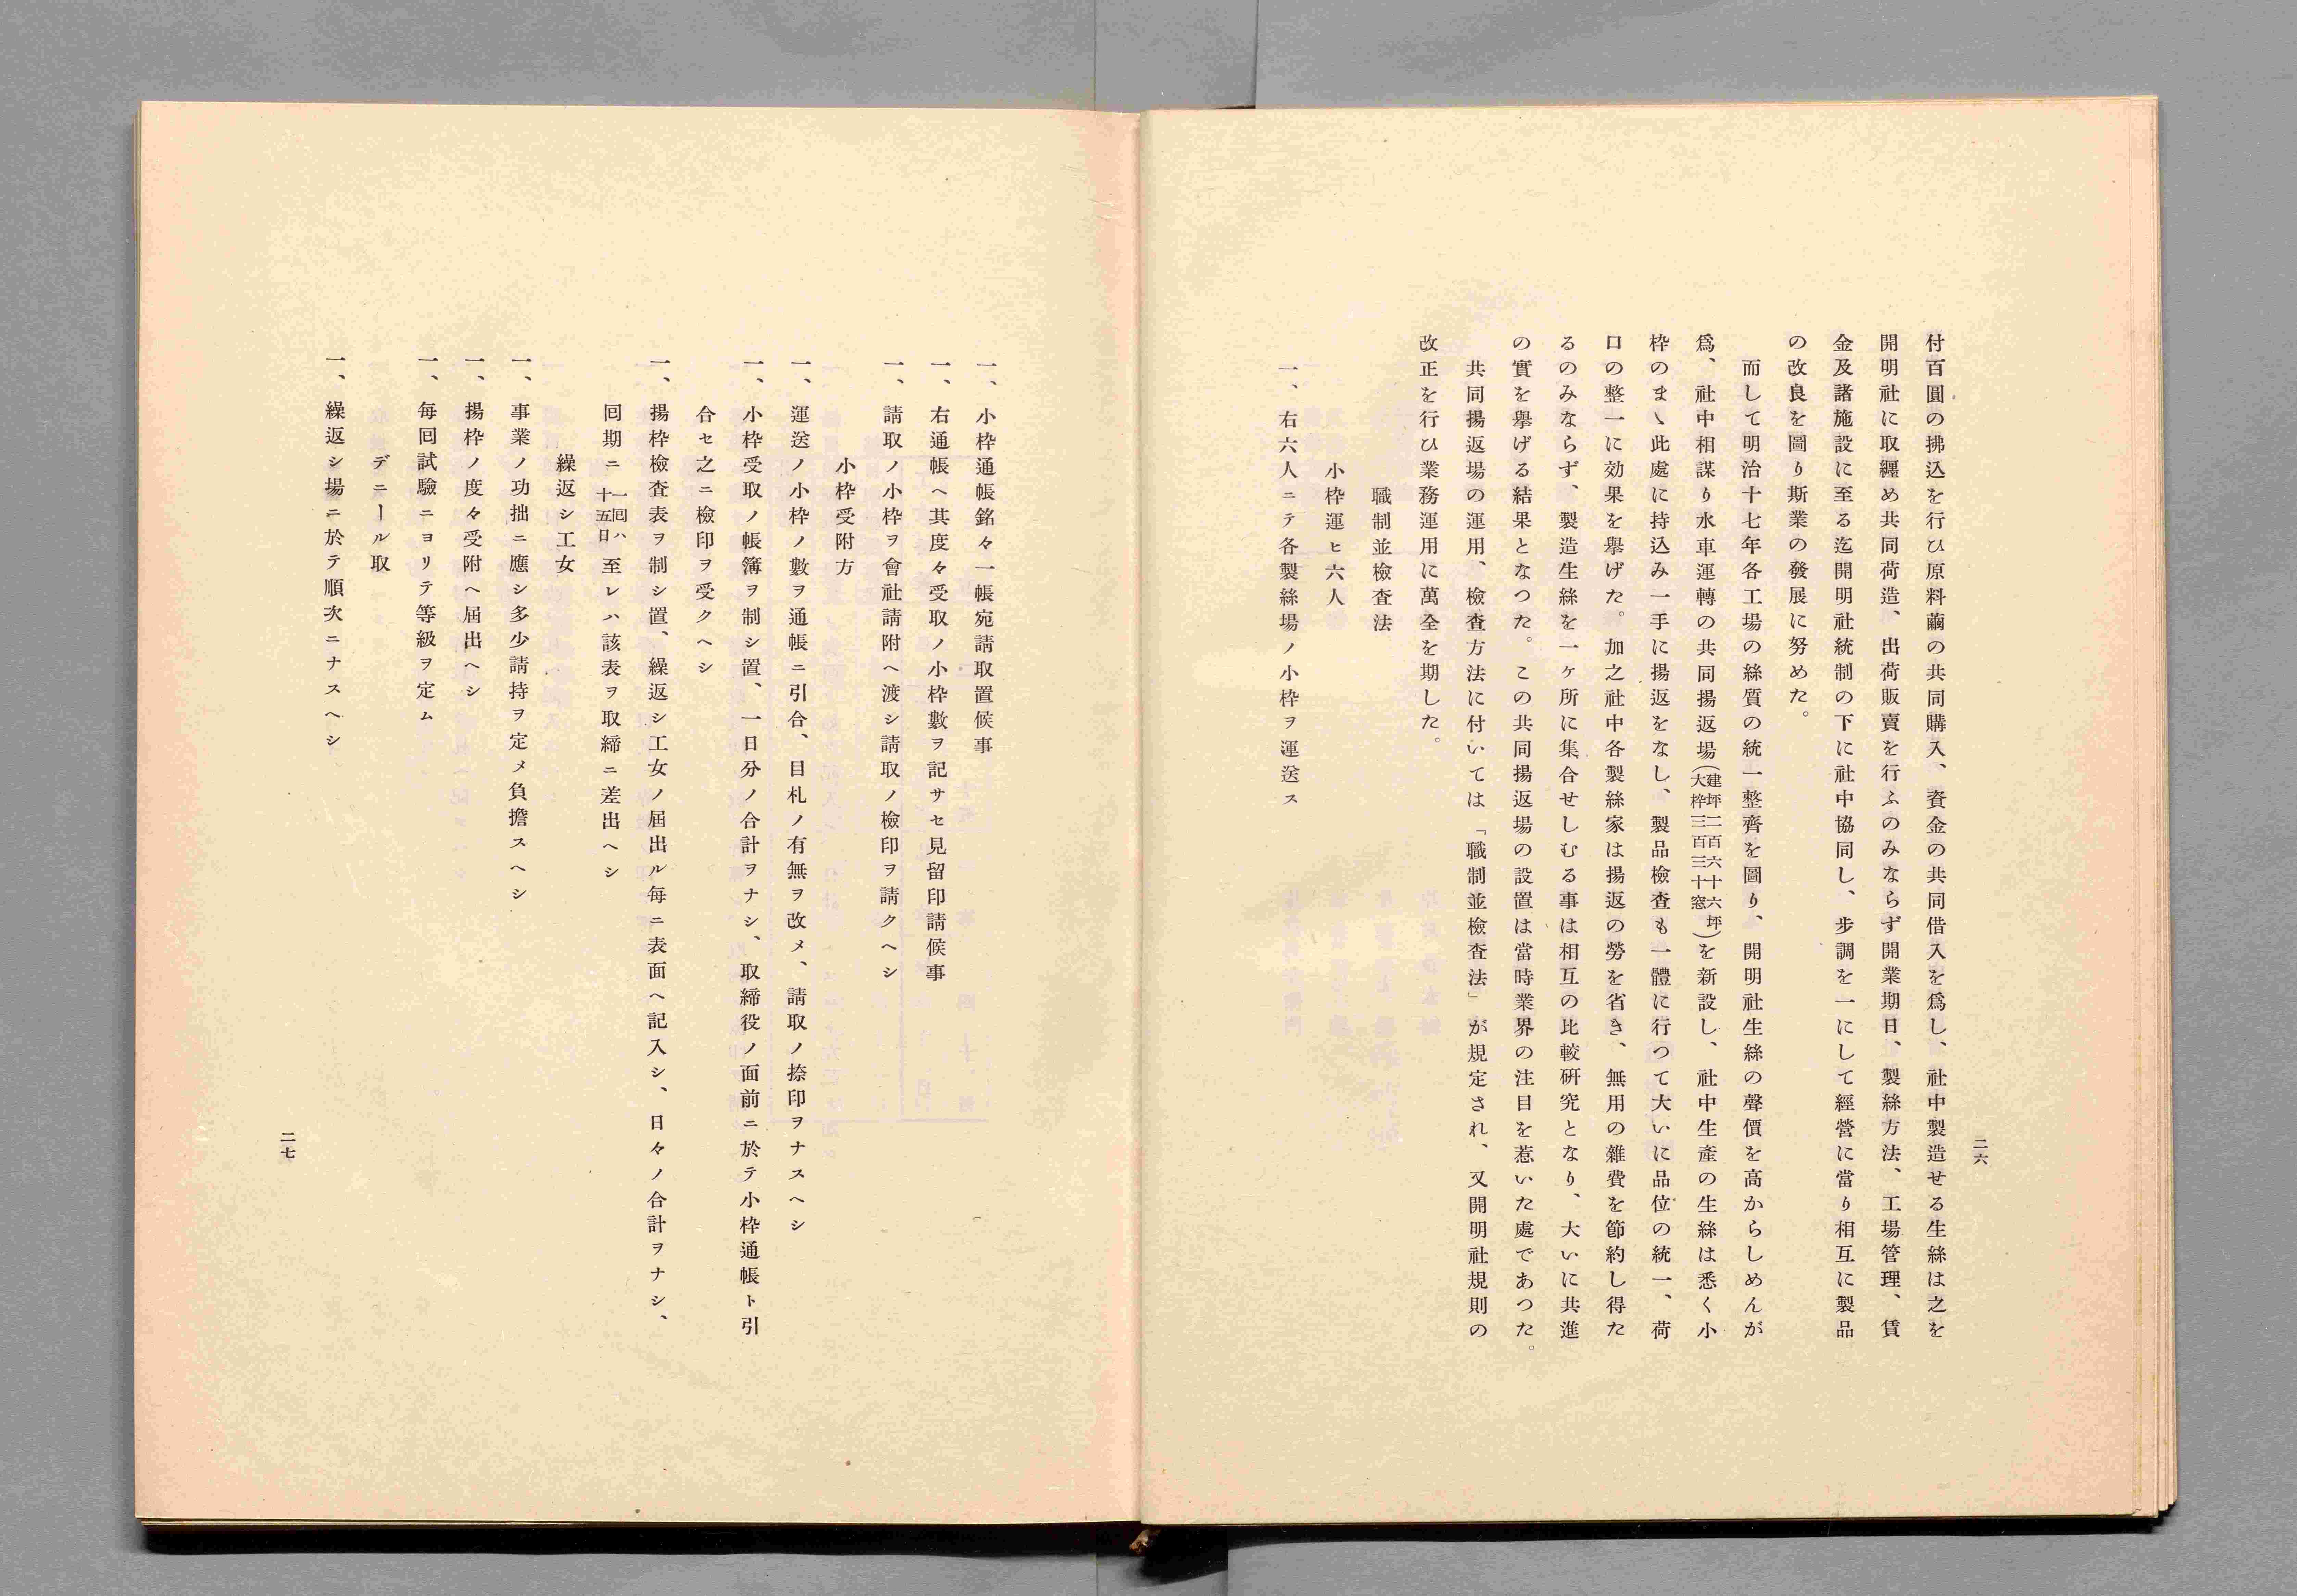 二六
付百圓の拂込を行ひ原料繭の共同購入、資金の共同借入を爲し、社中製造せる生絲は之を
開明社に取纒め共同荷造、出荷販賣を行ふのみならず開業期日、製絲方法、工場管理、賃
金及諸施設に至る迄開明社統制の下に社中協同し、步調を一にして經營に當り相互に製品
の改良を圖り斯業の發展に努めた。
而して明治十七年各工場の絲質の統一整齊を圖り、開明社生絲の聲價を高からしめんが
爲、社中相謀り水車運轉の共同揚返場(建坪二百六十六坪大枠三百三十窓)を新設し、社中生產の生絲は悉く小
枠のまゝ此處に持込み一手に揚返をなし、製品檢査も一體に行つて大いに品位の統一、荷
口の整一に効果を擧げた。加之社中各製絲家は揚返の勞を省き、無用の雜費を節約し得た
るのみならず、製造生絲を一ヶ所に集合せしむる事は相互の比較硏究となり、大いに共進
の實を擧げる結果となつた。この共同揚返場の設置は當時業界の注目を惹いた處であつた。
共同揚返場の運用、檢査方法に付いては「職制並檢査法」が規定され、又開明社規則の
改正を行ひ業務運用に萬全を期した。
職制並檢査法
小枠運ヒ六人
一、右六人ニテ各製絲場ノ小枠ヲ運送ス
一、小枠通帳銘々一帳宛請取置候事
一、右通帳ヘ其度々受取ノ小枠數ヲ記サセ見留印請候事
一、請取ノ小枠ヲ會社請附ヘ渡シ請取ノ檢印ヲ請クヘシ
小枠受附方
一、運送ノ小枠ノ數ヲ通帳ニ引合、目札ノ有無ヲ改メ、請取ノ捺印ヲナスヘシ
一、小枠受取ノ帳簿ヲ制シ置、一日分ノ合計ヲナシ、取締役ノ面前ニ於テ小枠通帳ト引
合セ之ニ檢印ヲ受クヘシ
一、揚枠檢査表ヲ制シ置、繰返シ工女ノ屆出ル每ニ表面ヘ記入シ、日々ノ合計ヲナシ、
回期ニ一回ハ十五日至レハ該表ヲ取締ニ差出ヘシ
繰返シ工女
一、事業ノ功拙ニ應シ多少請持ヲ定メ負擔スヘシ
一、揚枠ノ度々受附ヘ屆出ヘシ
一、每回試驗ニヨリテ等級ヲ定ム
デニール取
一、繰返シ場ニ於テ順次ニナスヘシ
二七